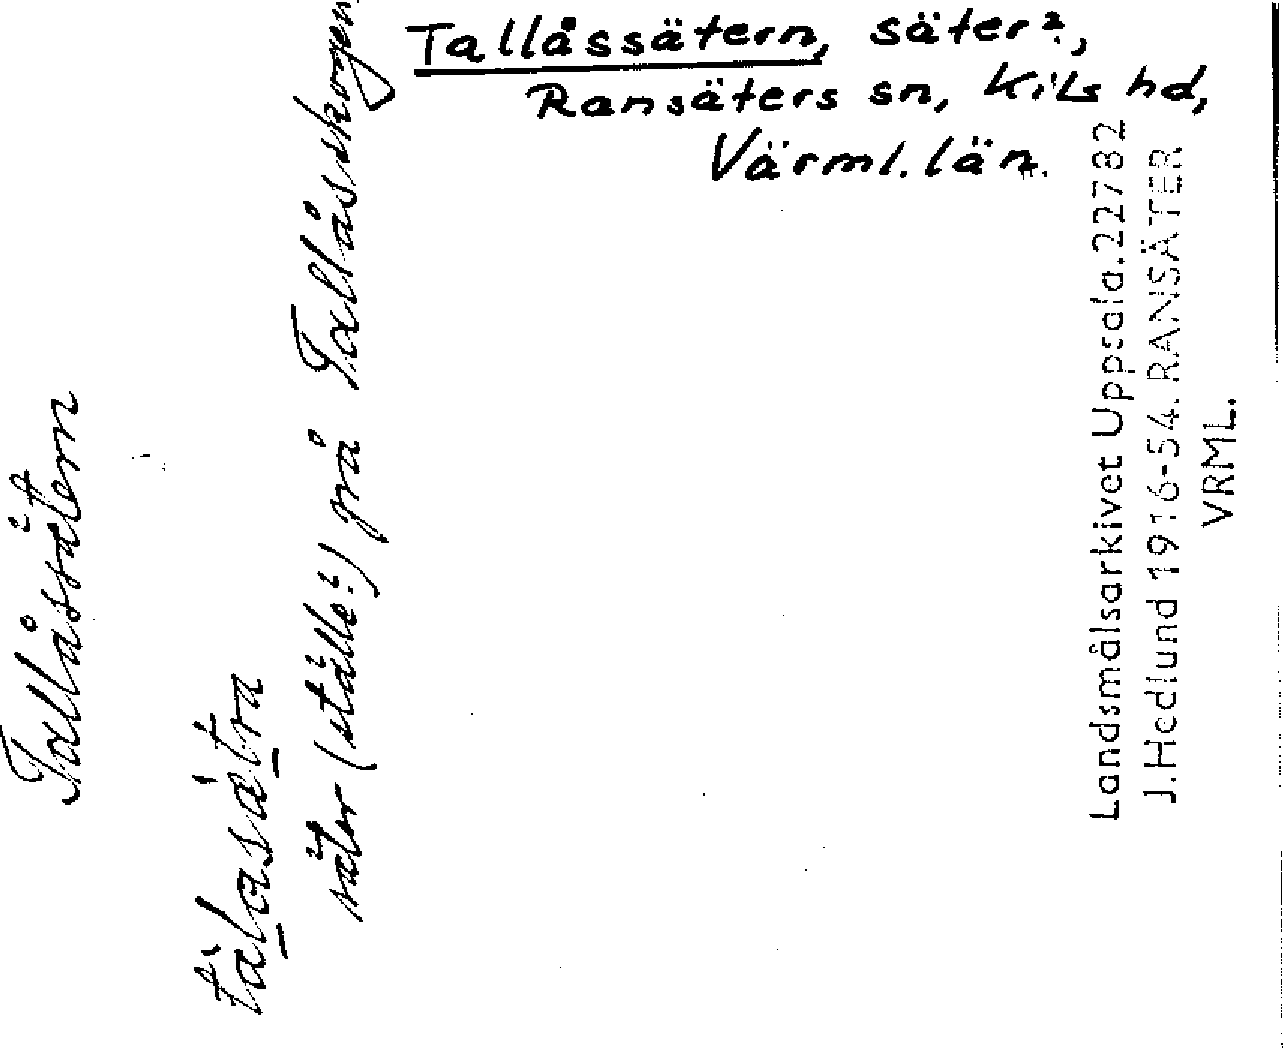 Tallåssätern, säter?,
Ransäters sn, Kils hd,
Värml. län.
Tallåssätern
tàlasä̀tra
säter (ställe?) på Tallåsskogen
Landsmålsarkivet Uppsala. 22782
J. Hedlund 1916-54. RANSÄTER
VRML.